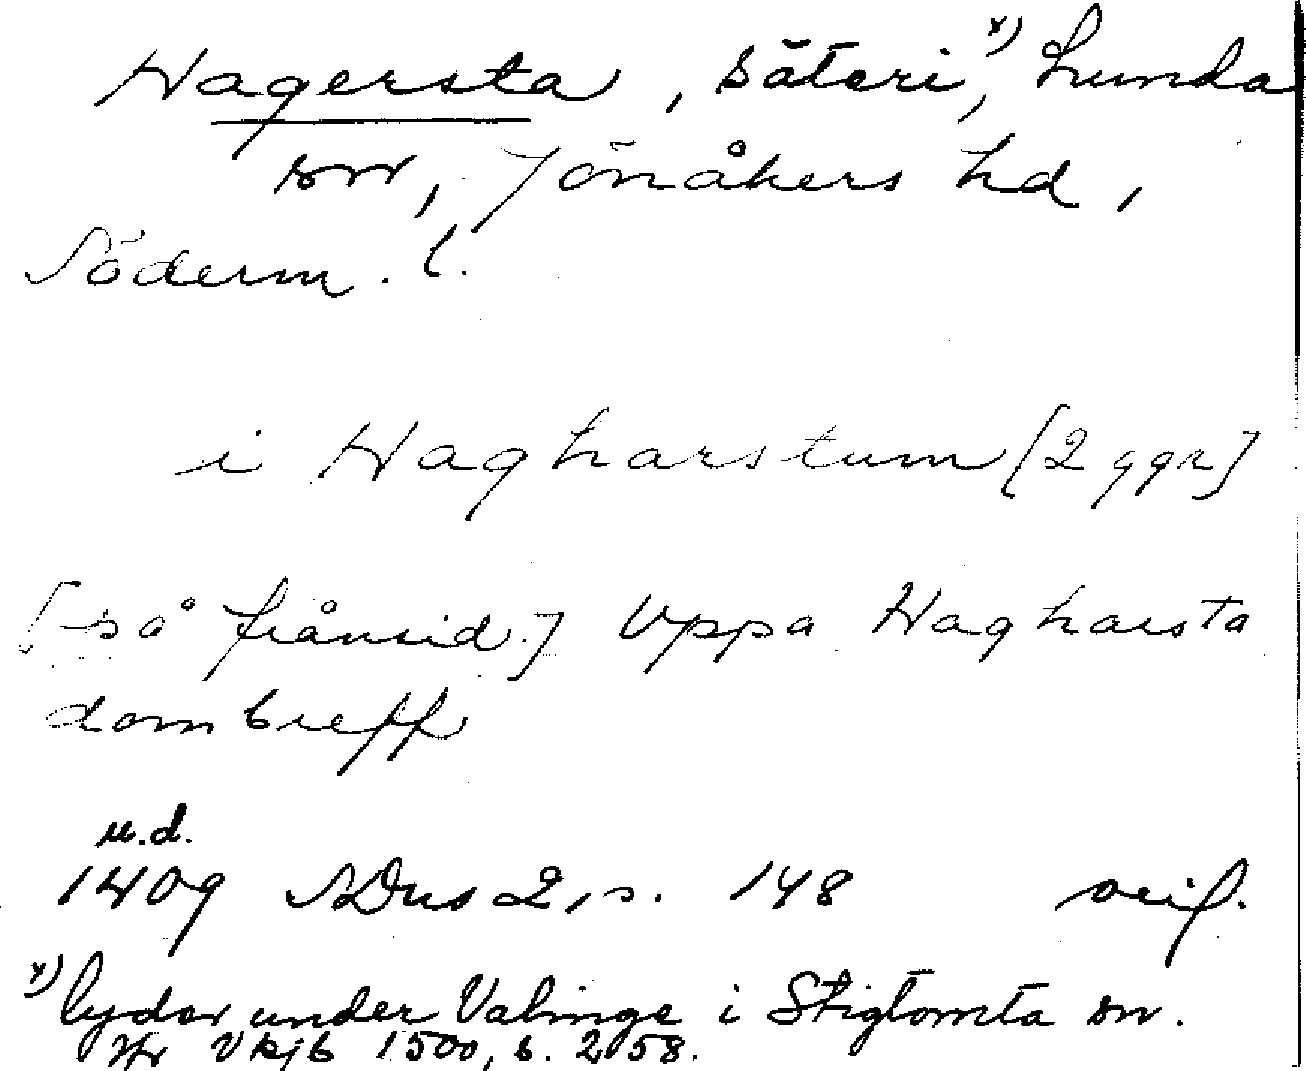 Hagersta, säteri,x) Lunda
sn, Jönåkers hd,
Söderm. l.
i Hagharstum [2 ggr]
[så frånsid.] Uppa Hagharsta
dombreff
u.d.
1409 SDns 2, s. 148 orig.
x) lyder under Valinge i Stigtomta sn.
Jfr Vkjb 1500, b. 258.